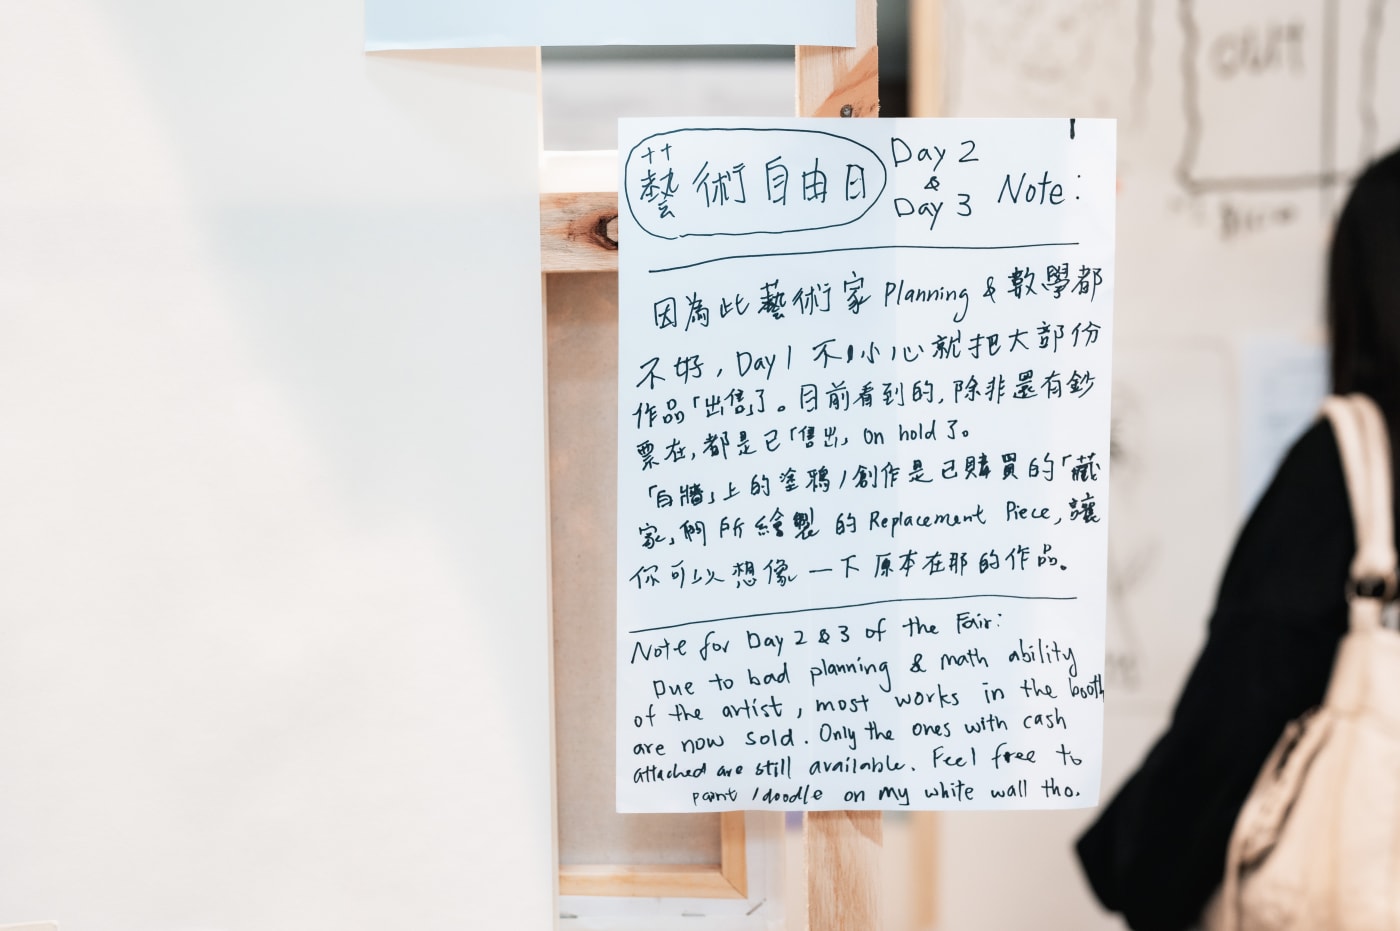 藝術自由日
Day 2
&
Day 3
Note:
因為此藝術家 Planning & 數學都
不好, Day 1 不小心就把大部份
作品「出售」了。目前看到的, 除非還有鈔
票在, 都是已「售出」 on hold 了。
「白牆」上的塗鴉/創作是已購買的「藏
家」們所繪製的 Replacement Piece, 讓
你可以想像一下原本在那的作品。
Note for Day 2 & 3 of the Fair:
Due to bad planning & math ability
of the artist, most works in the booth
are now sold. Only the ones with cash
attached are still available. Feel free to
paint / doodle on my white wall tho.